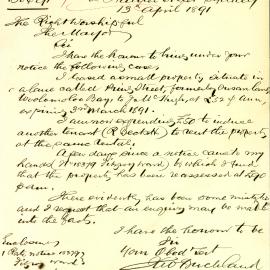 Sydney
13th April 1891.
The Right Worshipful
The Mayor
Sir
I have the honor to bring under your
notice the following case,
I leased a small property situate in
a lane called Street, formerly Susan Lane,
Woolomoloo Bay, to Hugh, at £52 Ann,
expiring 3rd March 1891.
I am now expending £50 to induce
another tenant to rent the property
at the same rental.
A few days since a notice came to my
hands by which I find
that the property has been reassessed at
p. ann.
There evidently has been some mistake
and I request that an enquiry may be made
into the facts.
I have the honor to be
Sir
Your Obdt Servt
Enclosure
1 Rate Notice 10379